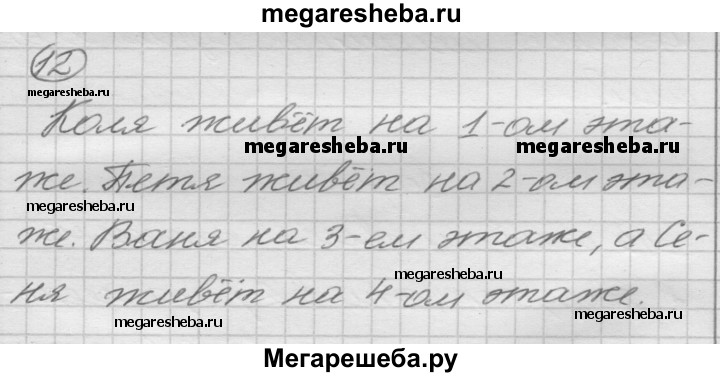 megaresheba.ru
12
megaresheba.ru
Коля живёт на 1-ом эта-
megaresheba.ru megaresheba.ru
же. Петя живёт на 2-ом эта-
megaresheba.ru
же. Ваня на 3-ем этаже, а Се-
megaresheba.ru
ня живёт на 4-ом этаже.
megaresheba.ru megaresheba.ru
Мегарешеба.ру